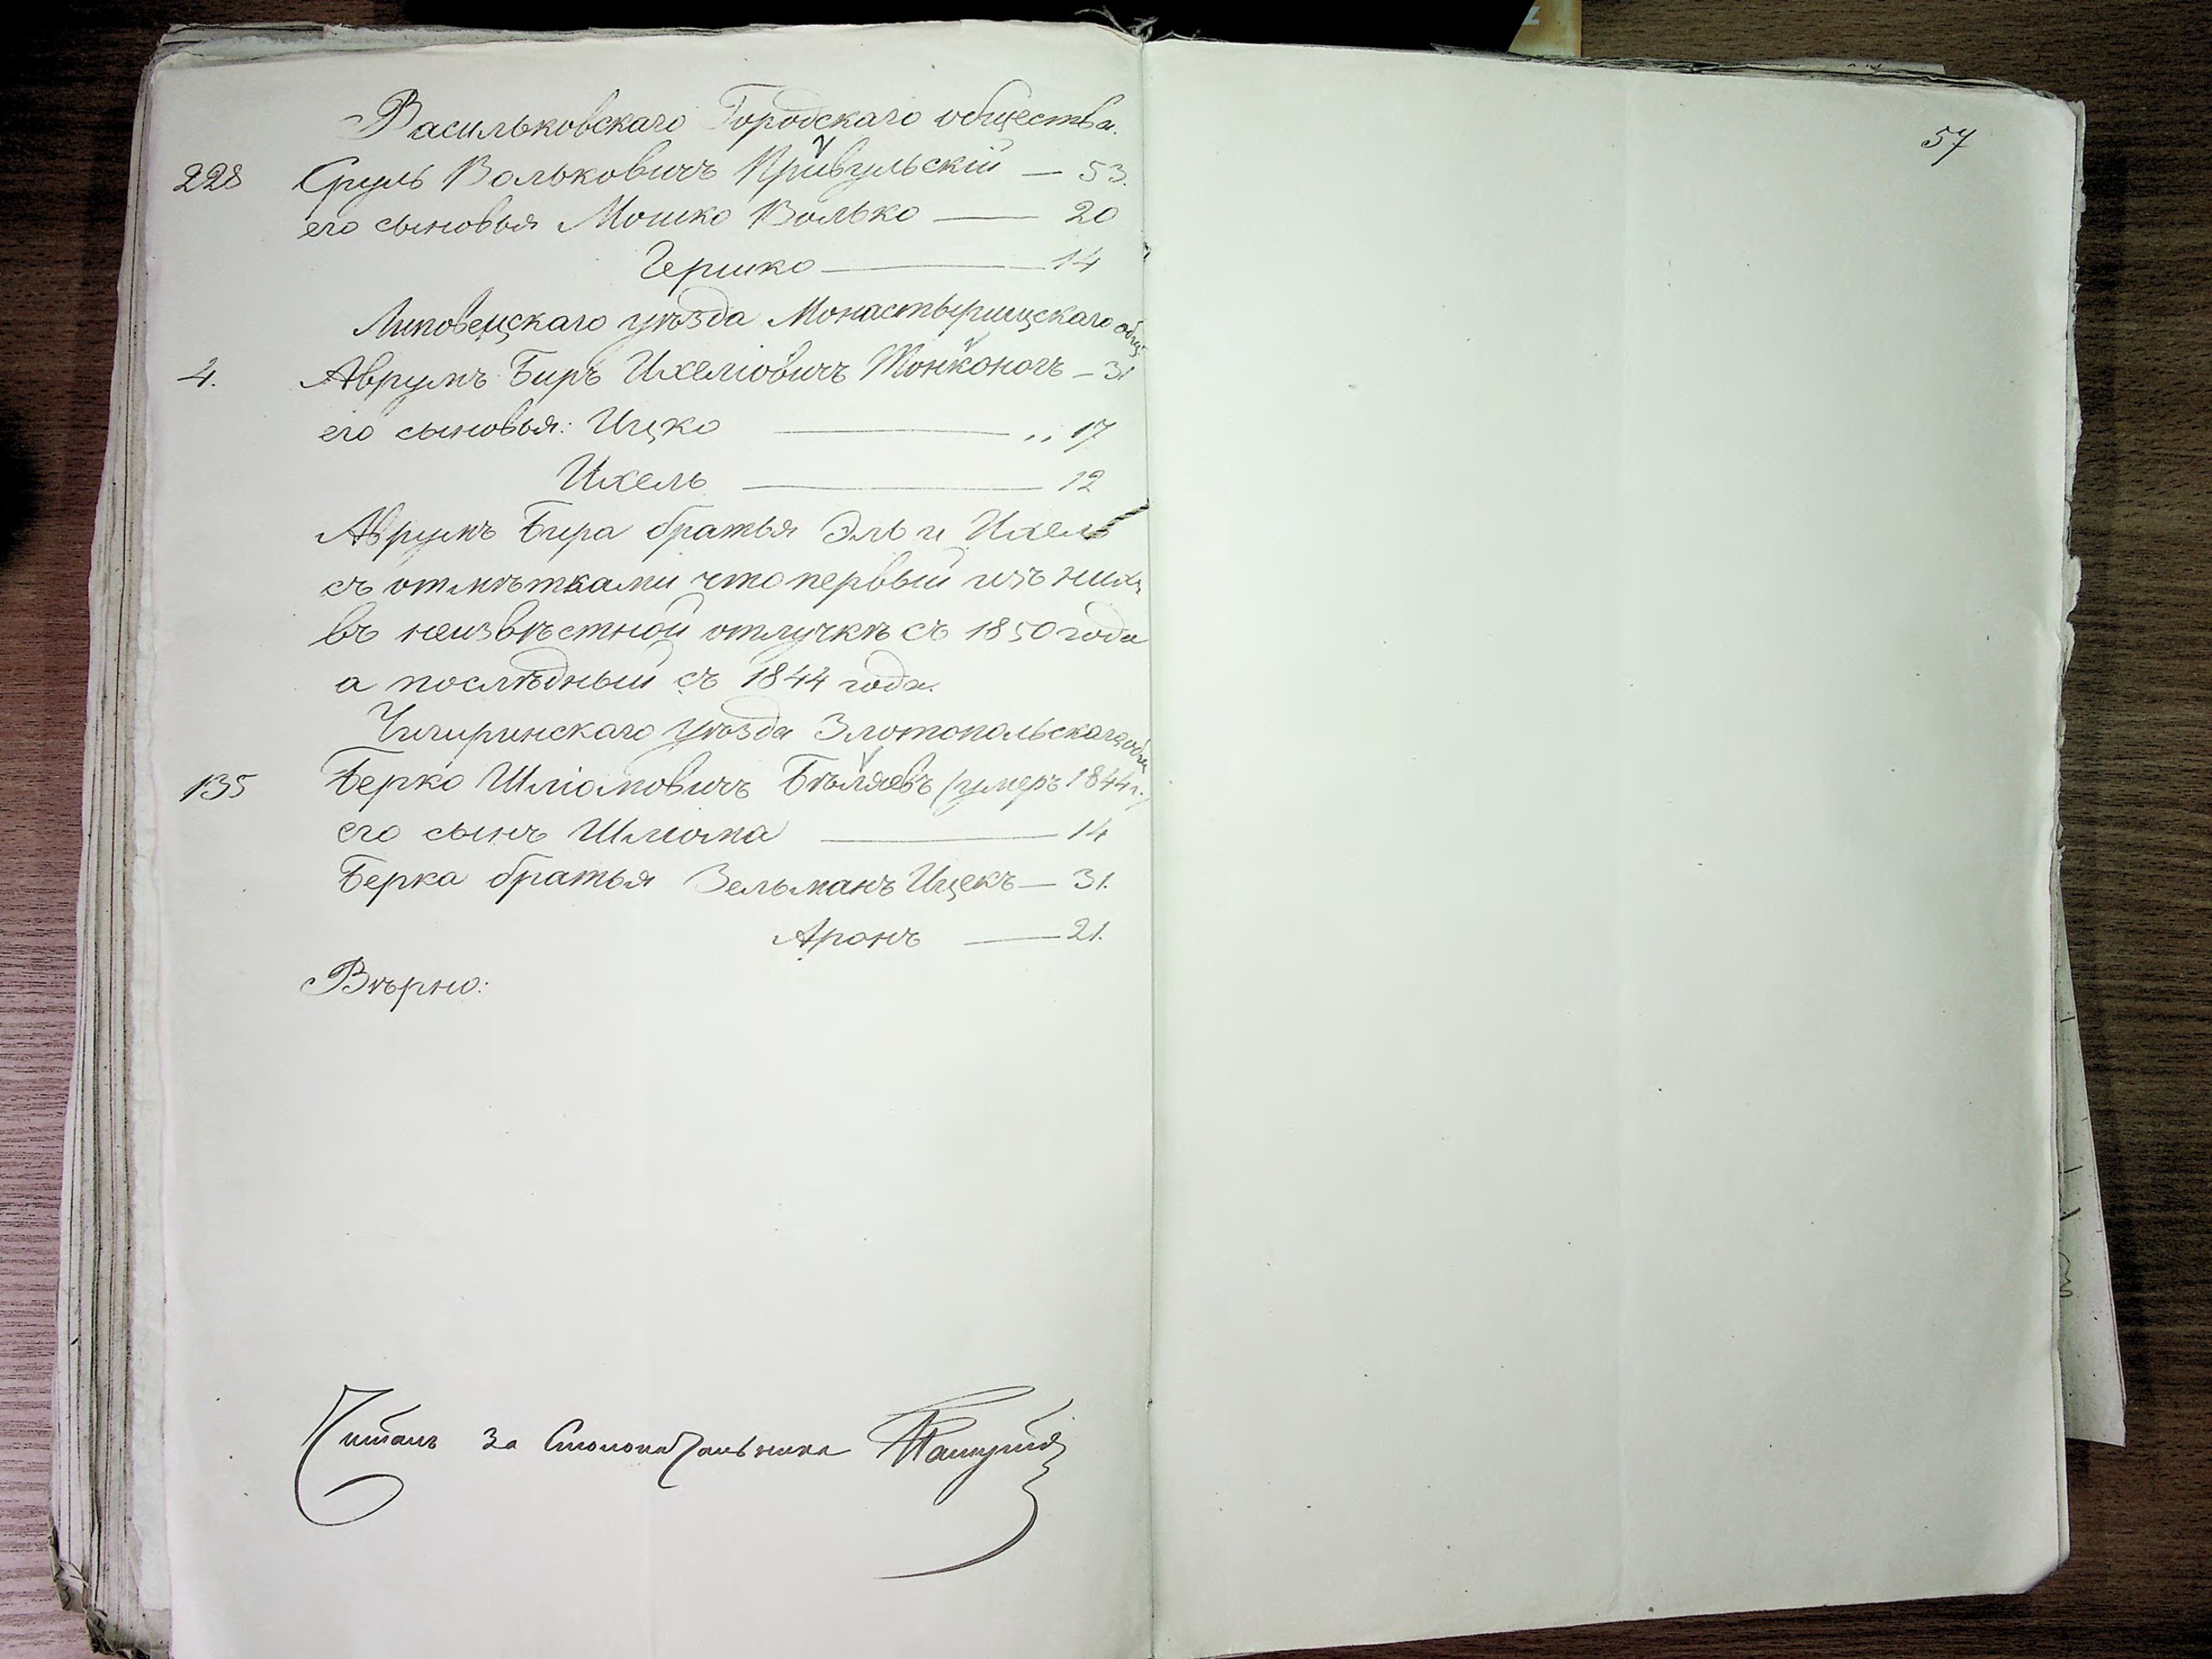 Васильковскаго Городскаго общества.
228 Сруль Волькович Кривульскій — 53.
его сыновья Мошко Волько — 20
Гершко — 14
Липовецскаго уѣзда Монастырищскаго общ.
4. Аврумъ Биръ Ихеліовичъ Тонконогъ — 31
его сыновья: Ицко — „ 17
Ихель — 12
Аврумъ Бира братья Эль и Ихель
съ отмѣтками что первый изъ нихъ
въ неизвѣстной отлучкѣ съ 1850 года
а послѣдный съ 1844 года.
Чигиринскаго уѣзда Златопольскаго общ
135 Берко Шліомовичъ Бѣляевъ (умеръ 1844 г.)
его сынъ Шліома — 14
Берка братья Зельманъ Ицекъ — 31.
Аронъ — 21.
Вѣрно:
Читалъ За Столоначальника
57